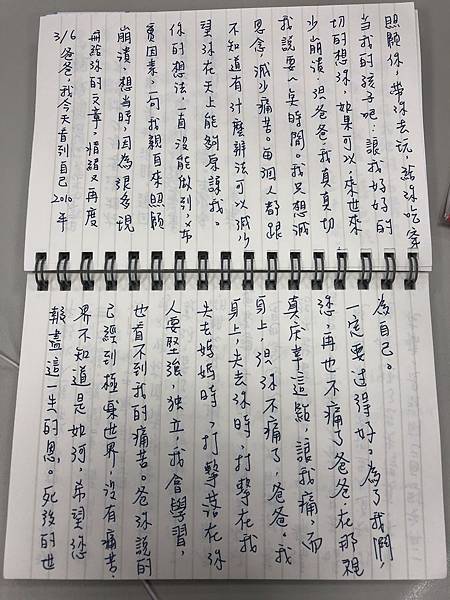 3/6 爸爸,我今天看到自己2010年
給你的文章,又再度
崩潰,想當時,因為很多現
實因素,一句我親自來照顧
你的想法,一直沒能做到,希
望你在天上能夠原諒我。
不知道有什麼辦法可以減少
思念減少痛苦。每個人都跟
我說要一點時間。我只想減
少崩潰,但爸爸,我真真切
切的想你,如果可以,來世來
當我的孩子吧,讓我好好的
照顧你,帶你去玩,帶你吃
報盡這一生的恩。死後的世
界不知道是如何,希望您
已經到極樂世界,沒有痛苦,
也看不到我的痛苦。爸你說的
人要堅強,獨立,我會學習,
失去媽媽時,打擊落在你
身上,失去你時,打擊在我
身上,但你不痛了,爸爸。我
真慶幸這點,讓我痛,而
您,再也不痛了 爸爸在那裡
一定要過得好。為了我們,
為自己。